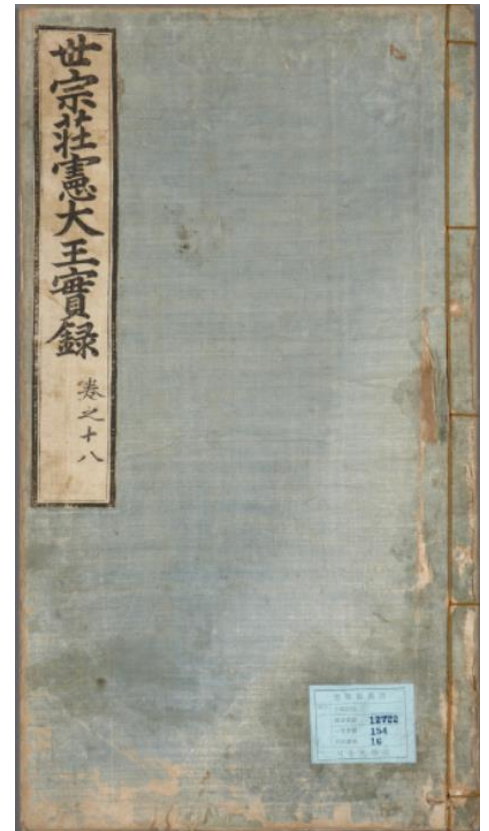 世宗莊憲大王實錄
卷之十八
12722
154
16